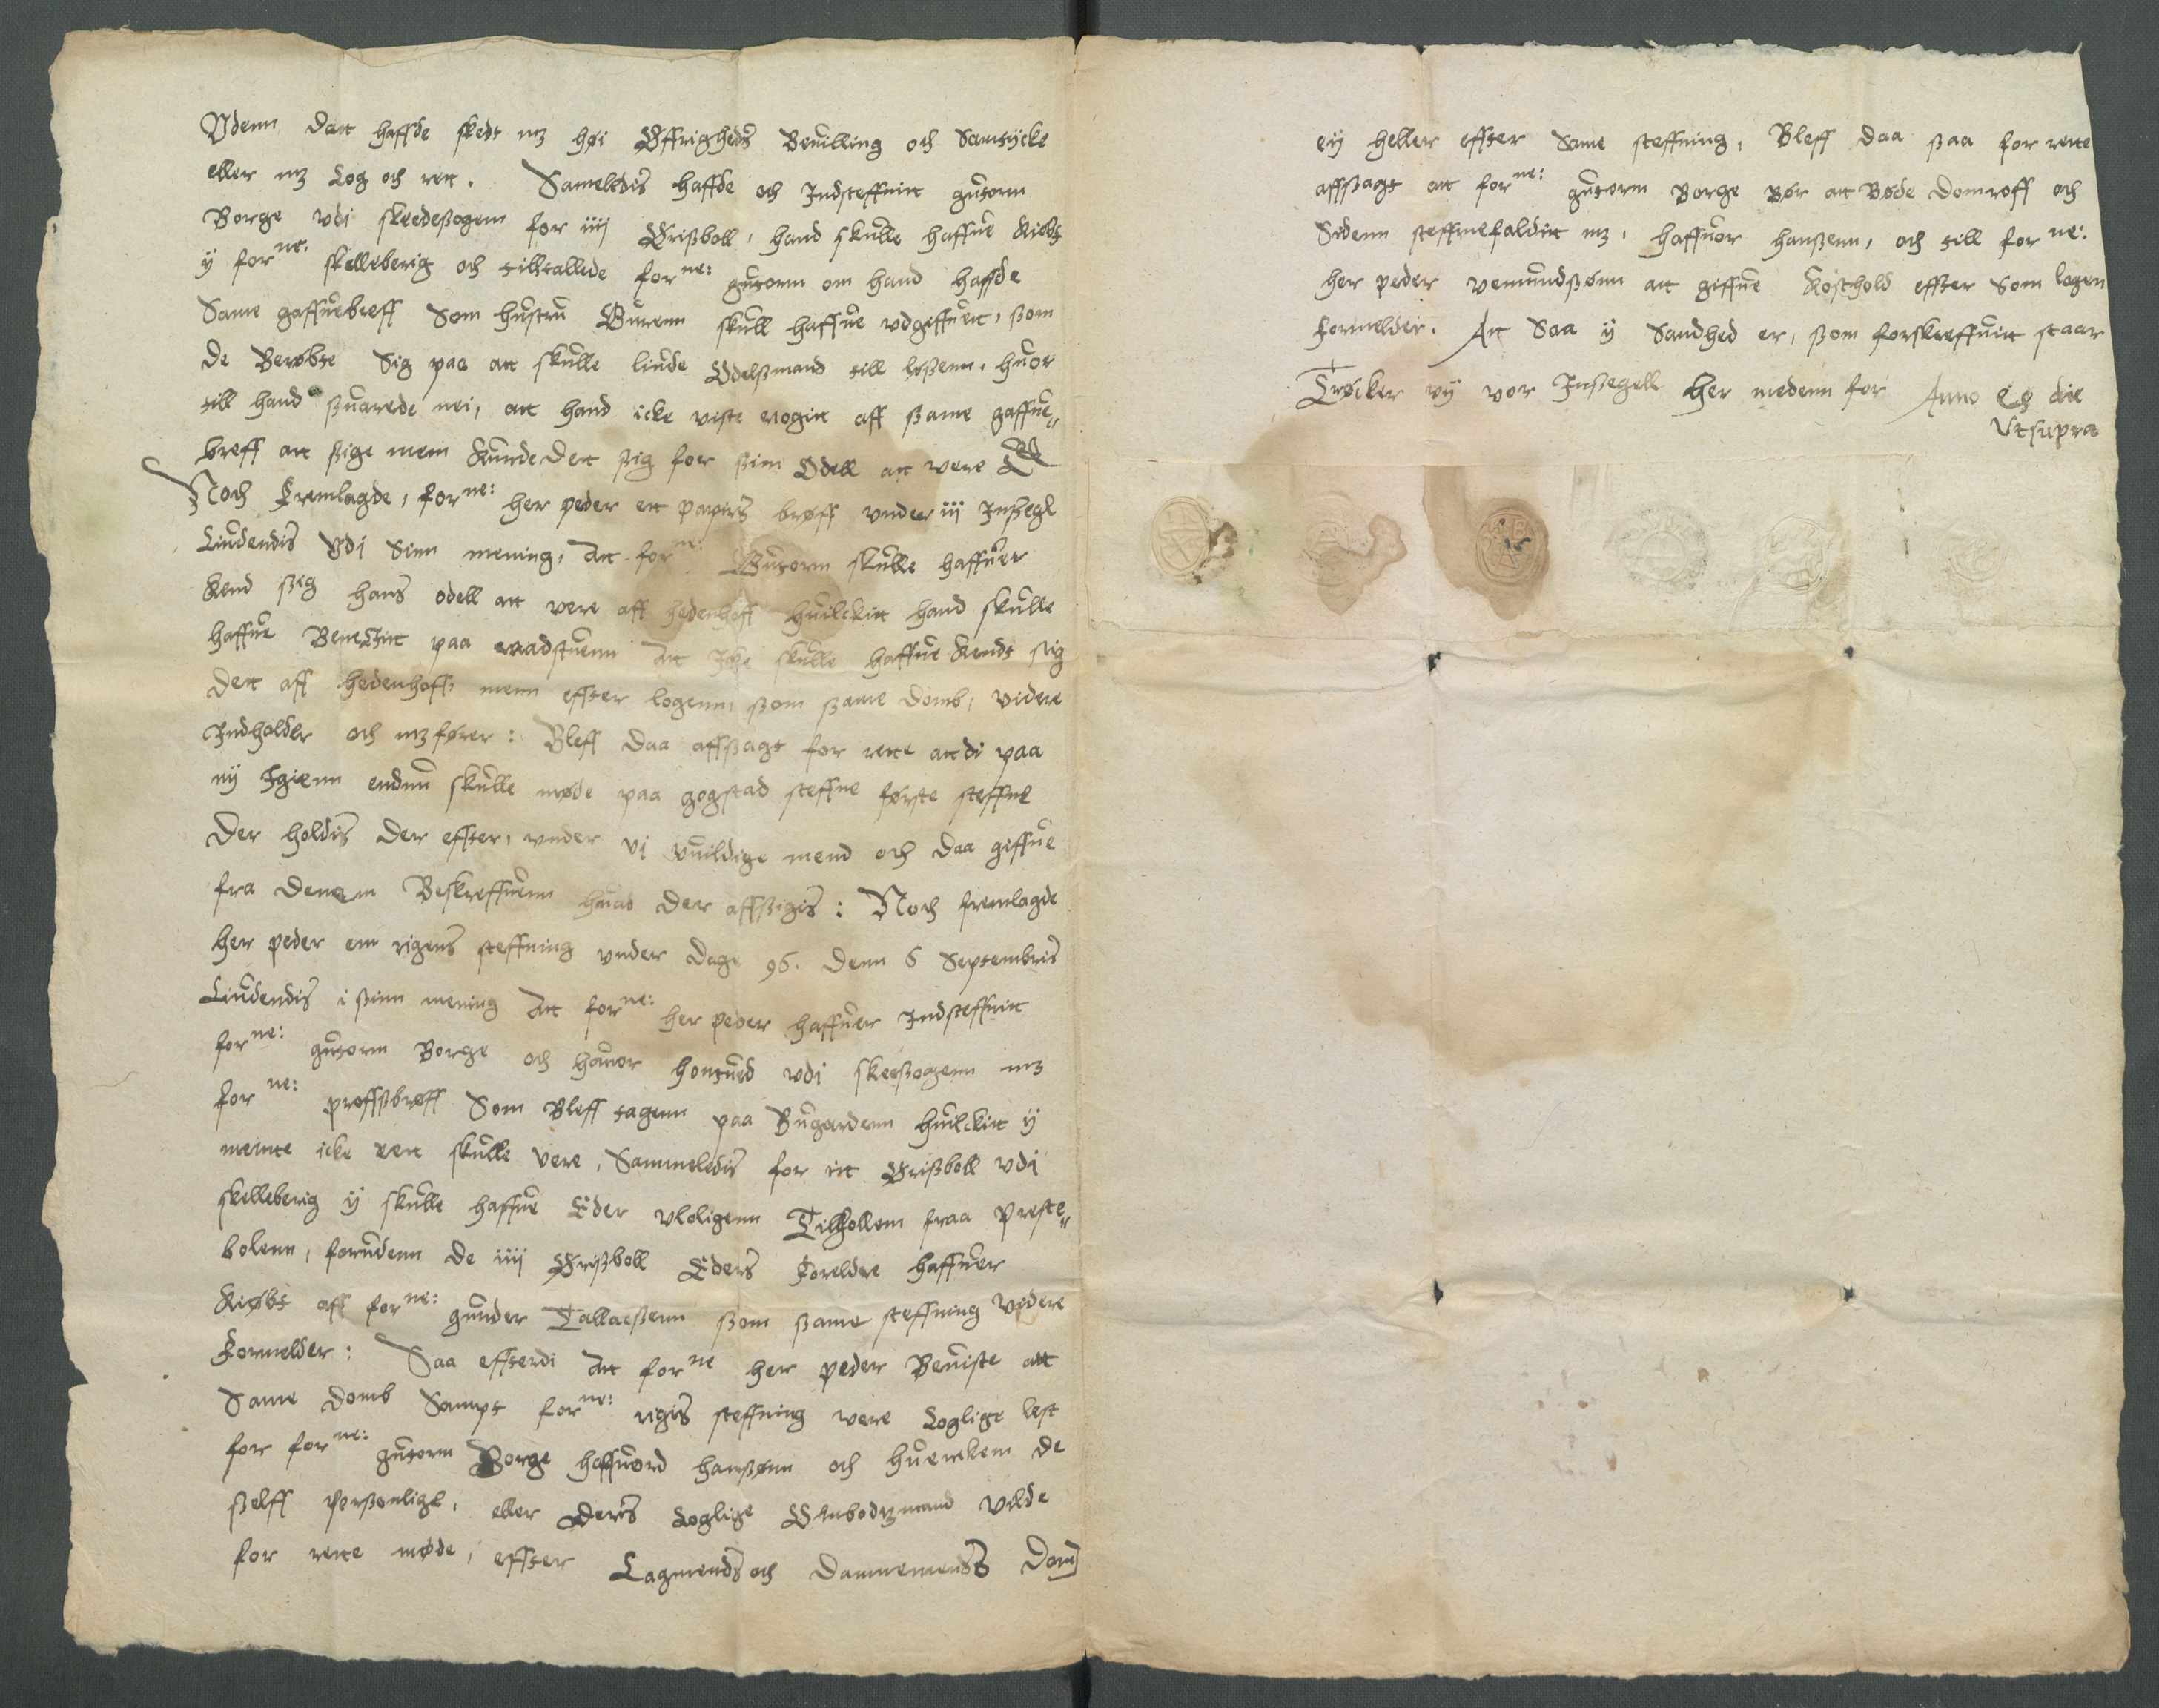 Vdenn dett haffde skedt mz høi Øffrigheds Beuilling och Samtÿcke
eller mz Log och rett. Sameledis haffde och Indsteffnitt gutorm
Borge vdi skeedeßogenn for iiij Ørißboll, hand skulle haffue kiøbt
ÿ forne: skelleberig och tilltallede forne: gutorm om hand haffde
Same gaffuebreff Som hustru Gurenn skull haffue vdgiffuett, ßom
de Berøbte Sig paa att skulle liude Odelßmand till løßenn, huor
till hand ßuarede nei, att hand icke viste nogitt aff ßame gaffue„
breff att ßige menn kunde dett ßig for ßinn Odell att were
Noch Fremlagde, forne: her peder ett papirs brøff vnder iij Inßegl
Liudendis Vdi Sinn mening, Att forne: Gutorm skulle haffuer
kend ßig hans odell att vere aff hedenhoff huilckitt hand skulle
haffue Benecktitt paa raadstuenn Att Icke skulle haffue kendt sig
dett aff hedenhoff, menn effter logenn, ßom ßame domb, videre
Indholder och mzfører: Bleff daa affßagt for rette att di paa
nÿ Igienn endnu skulle møde paa gogstad steffne første steffne
Der holdis der effter, vnder vi vuildige mend och daa giffue
fra dennem Beskreffuenn huad der affßigis: Noch fremlagde
her peder enn rigens steffning vnder dage 96. denn 6 Septembris
Liudendis i ßinn mening Att forne: her peder haffuer Indsteffnitt
forne: gutorm Borge och hauor hontued vdi skeeßogenn mz
forne: proffßbreff Som Bleff tagenn paa Bugardenn huilckitt ÿ
mente icke rett skulle vere, Sammeledis for itt Ørißboll vdi
skelleberig ÿ skulle haffue Eder vloligenn Tilhollenn fraa preste„
bolenn, forudenn de iiij Ørißboll Eders Foreldre haffuer
kiøbt aff forne: gunder Tallacßenn ßom ßame steffning videre
Formelder: Saa effterdi Att forne her peder Beuiste att
Same domb Sampt forne: rigis steffning were Loglige lest
for forne: gutorm Borge haffuord hanßønn och huerckenn de
ßelff Perßonlige, eller deris Loglige Ombodzmand vilde
for rette møde, effter Lagmends och dannemends dom
eÿ heller effter Same steffning, Bleff daa ßaa for rette
affßagt att forne: gutorm Borge Bør att Bøde domroff och
Sidenn steffnefalditt mz, haffuor hanßenn, och till forne:
her peder vemundßønn att giffue kosthold effter Som logen
Formelder. Att Saa ÿ Sandhed er, ßom forskreffuitt staar
Trøcker vÿ vor Inßegell her nedenn for Anno Et die
Vt supra